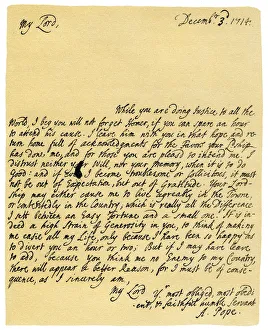 Decemb.r 3.d 1714.
My Lord,
While you are doing justice to all the
World, I beg you will not forget Homer, if you can spare an hour
to attend his cause. I leave him with you in that hope, and re-
turn home full of acknowledgments for the Favors your Lordship
has done me, and for those you are pleased to intend me. I
distrust neither your Will, nor your Memory, when it is to do
Good: and if ever I become troublesome or sollicitous, it must
not be out of Expectation, but out of Gratitude. Your Lord-
ship may either cause me to live agreeably in the Towne,
or contentedly in the Country, which is really all the Difference
I set between an Easy Fortune and a small one. It is in-
deed a high Strain of Generosity in you, to think of making
me easie all my Life, only because I have been so happy as
to divert you an hour or two; But if I may have leave
to add, because you think me no Enemy to my Country,
there will appear a better Reason, for I must be of conse-
quence, as I sincerely am,
My Lord y.r most obliged, most obedi-
ent, & faithful humble Servant
A. Pope.